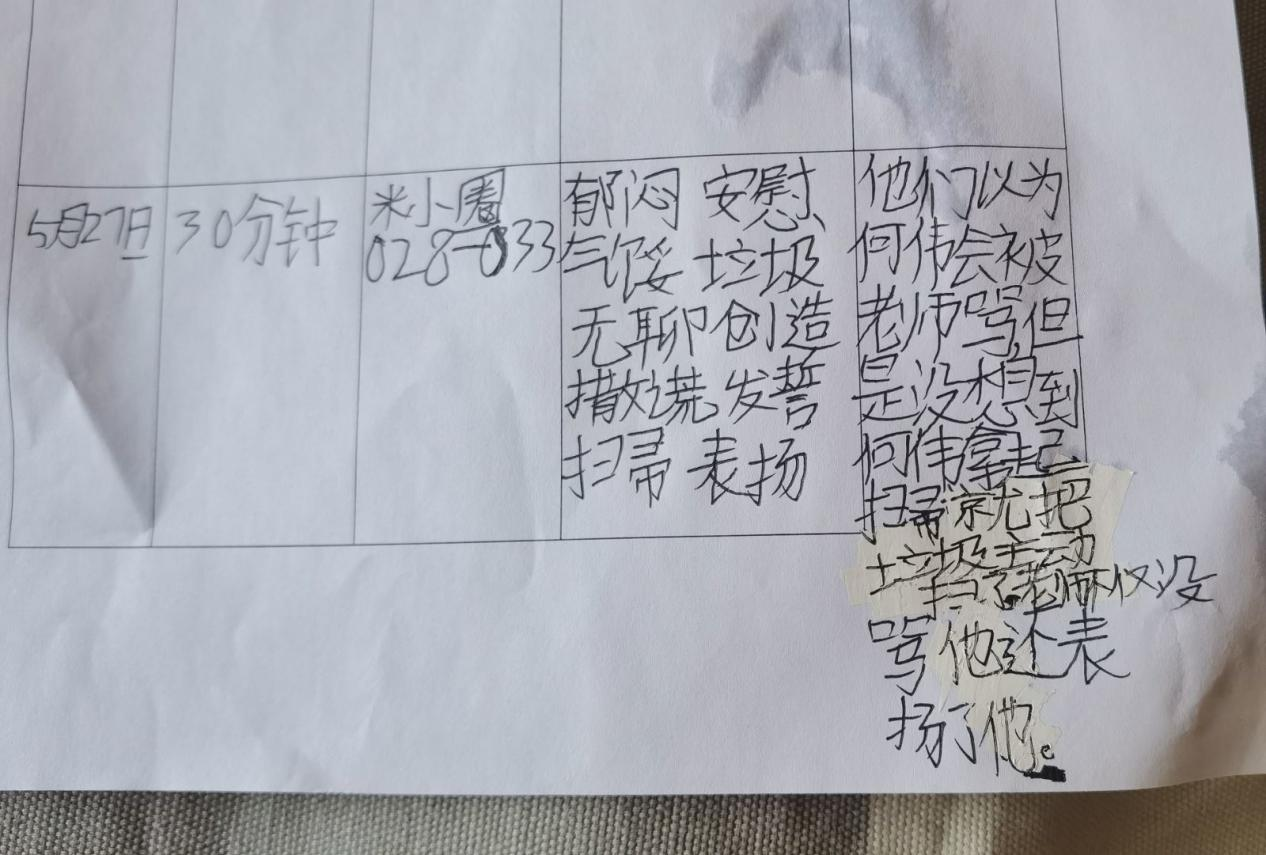 5月27日
30分钟
米小圈
028-033
郁闷 安慰
气馁 垃圾
无聊 创造
撒谎 发誓
扫帚 表扬
他们以为
何伟会被
老师骂,但
是没想到
何伟拿起
扫帚就把
垃圾主动
扫了老师不仅没
骂他还表
扬了他。